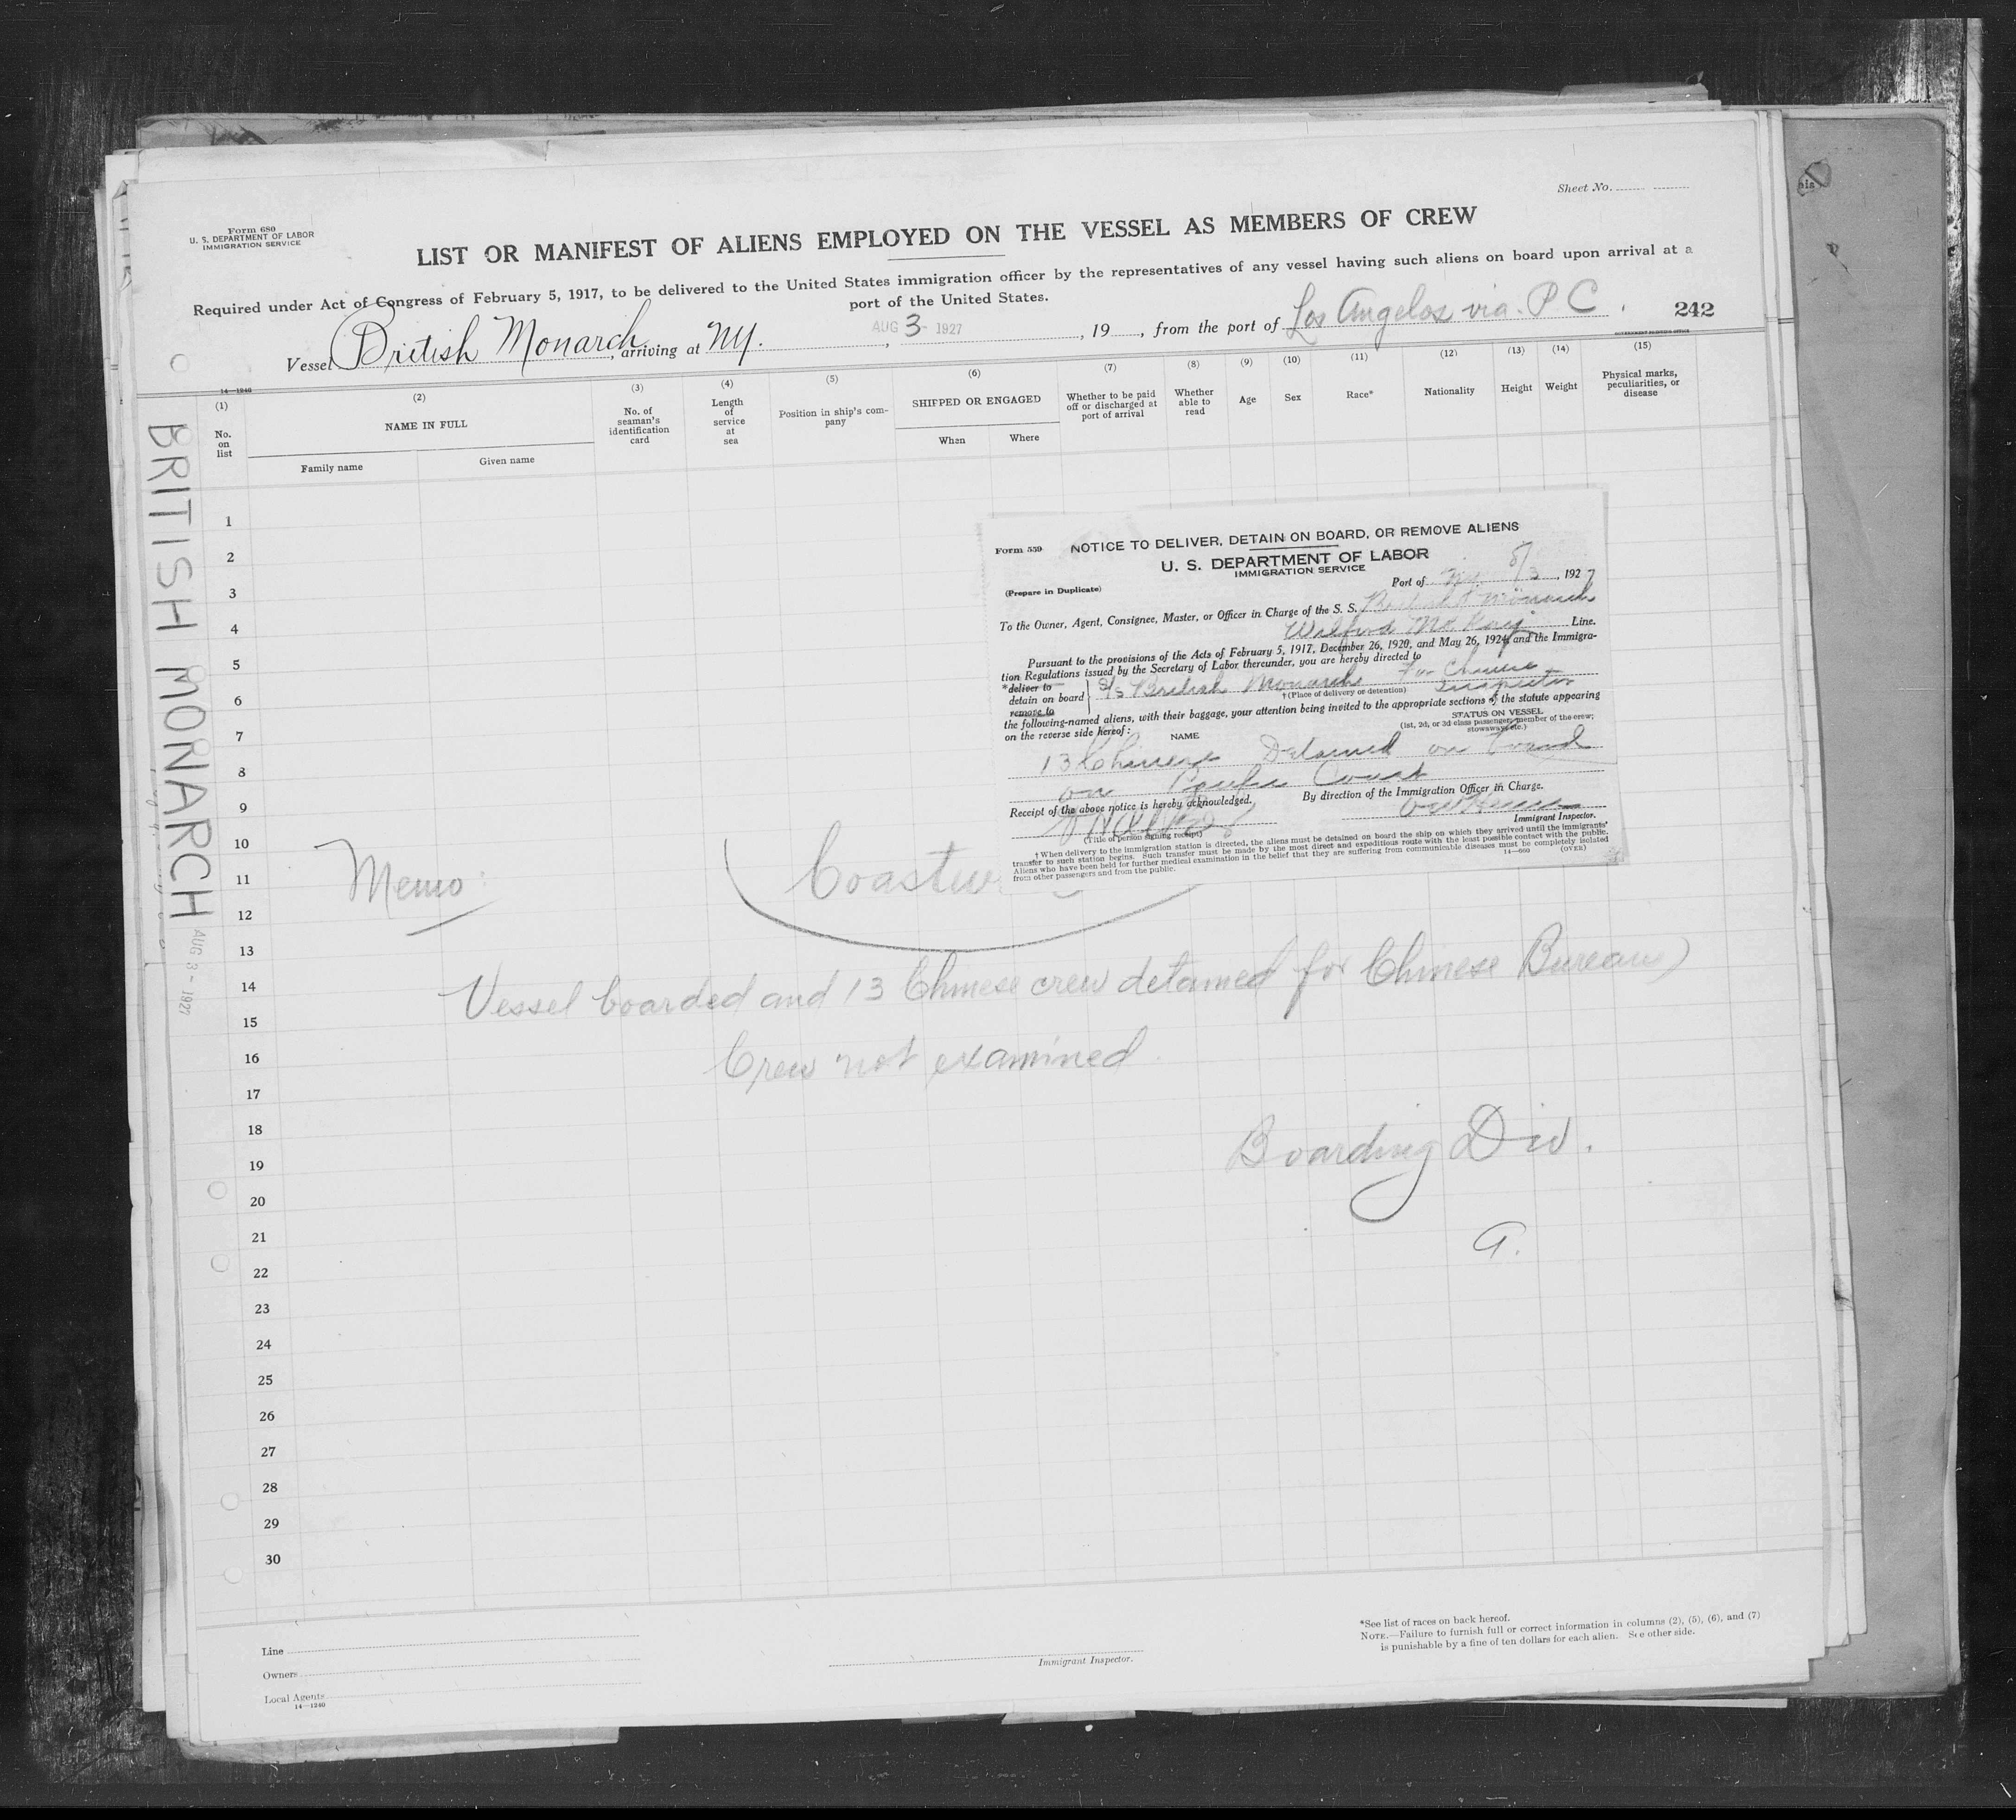 Sheet No.
Form 680
U. S. DEPARTMENT OF LABOR
IMMIGRATION SERVICE
LIST OR MANIFEST OF ALIENS EMPLOYED ON THE VESSEL AS MEMBERS OF CREW
Required under Act of Congress of February 5, 1917, to be delivered to the United States immigration officer by the representatives of any vessel having such aliens on board upon arrival at a
port of the United States.
Vessel British Monarch, arriving at NY., AUG 3 - 1927, 19, from the port of Los Angelos via. P C. 242
GOVERNMENT PRINTING OFFICE
14—1240
(1) (2) (3) (4) (5) (6) (7) (8) (9) (10) (11) (12) (13) (14) (15)
No. on list
NAME IN FULL
Family name Given name
No. of seaman's identification card
Length of service at sea
Position in ship's company
SHIPPED OR ENGAGED
When Where
Whether to be paid off or discharged at port of arrival
Whether able to read
Age
Sex
Race*
Nationality
Height
Weight
Physical marks, peculiarities, or disease
BRITISH MONARCH AUG 3 - 1927
1
2
3
4
5
6
7
8
9
10
11
12
13
14
15
16
17
18
19
20
21
22
23
24
25
26
27
28
29
30
Form 559
NOTICE TO DELIVER, DETAIN ON BOARD, OR REMOVE ALIENS
U. S. DEPARTMENT OF LABOR
IMMIGRATION SERVICE
(Prepare in Duplicate)
Port of N.Y. 8/3, 1927
To the Owner, Agent, Consignee, Master, or Officer in Charge of the S. S. British Monarch
Line.
Pursuant to the provisions of the Acts of February 5, 1917, December 26, 1920, and May 26, 1924, and the Immigra-
tion Regulations issued by the Secretary of Labor thereunder, you are hereby directed to
*deliver to
detain on board
remove to
S/S British Monarch For Chinese
Inspector
†(Place of delivery or detention)
the following-named aliens, with their baggage, your attention being invited to the appropriate sections of the statute appearing
on the reverse side hereof:
NAME
STATUS ON VESSEL
(1st, 2d, or 3d class passenger; member of the crew;
stowaway, etc.)
13 Chinese Detained on board
on Pacific Coast
Receipt of the above notice is hereby acknowledged.
By direction of the Immigration Officer in Charge.
Immigrant Inspector.
(Title of person signing receipt)
†When delivery to the immigration station is directed, the aliens must be detained on board the ship on which they arrived until the immigrants'
transfer to such station begins. Such transfer must be made by the most direct and expeditious route with the least possible contact with the public.
Aliens who have been held for further medical examination in the belief that they are suffering from communicable diseases must be completely isolated
from other passengers and from the public.
14—660 (OVER)
Memo
Coastw
Vessel boarded and 13 Chinese crew detained for Chinese Bureau
Crew not examined
Boarding Div.
G.
Line
Owners
Local Agents
14—1240
Immigrant Inspector.
*See list of races on back hereof.
NOTE.—Failure to furnish full or correct information in columns (2), (5), (6), and (7)
is punishable by a fine of ten dollars for each alien. See other side.